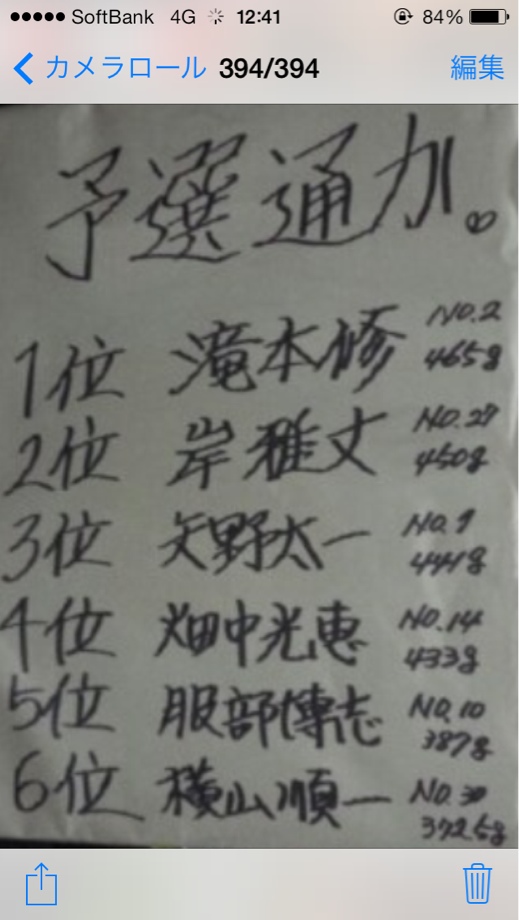 SoftBank 4G 12:41 84%
カメラロール 394/394 編集
予選通カ。
1位 滝本修 NO.2
465g
2位 岸雅丈 NO.27
450g
3位 矢野太一 NO.9
441g
4位 畑中光恵 NO.14
433g
5位 服部博志 NO.10
387g
6位 横山順一 NO.30
372.5g